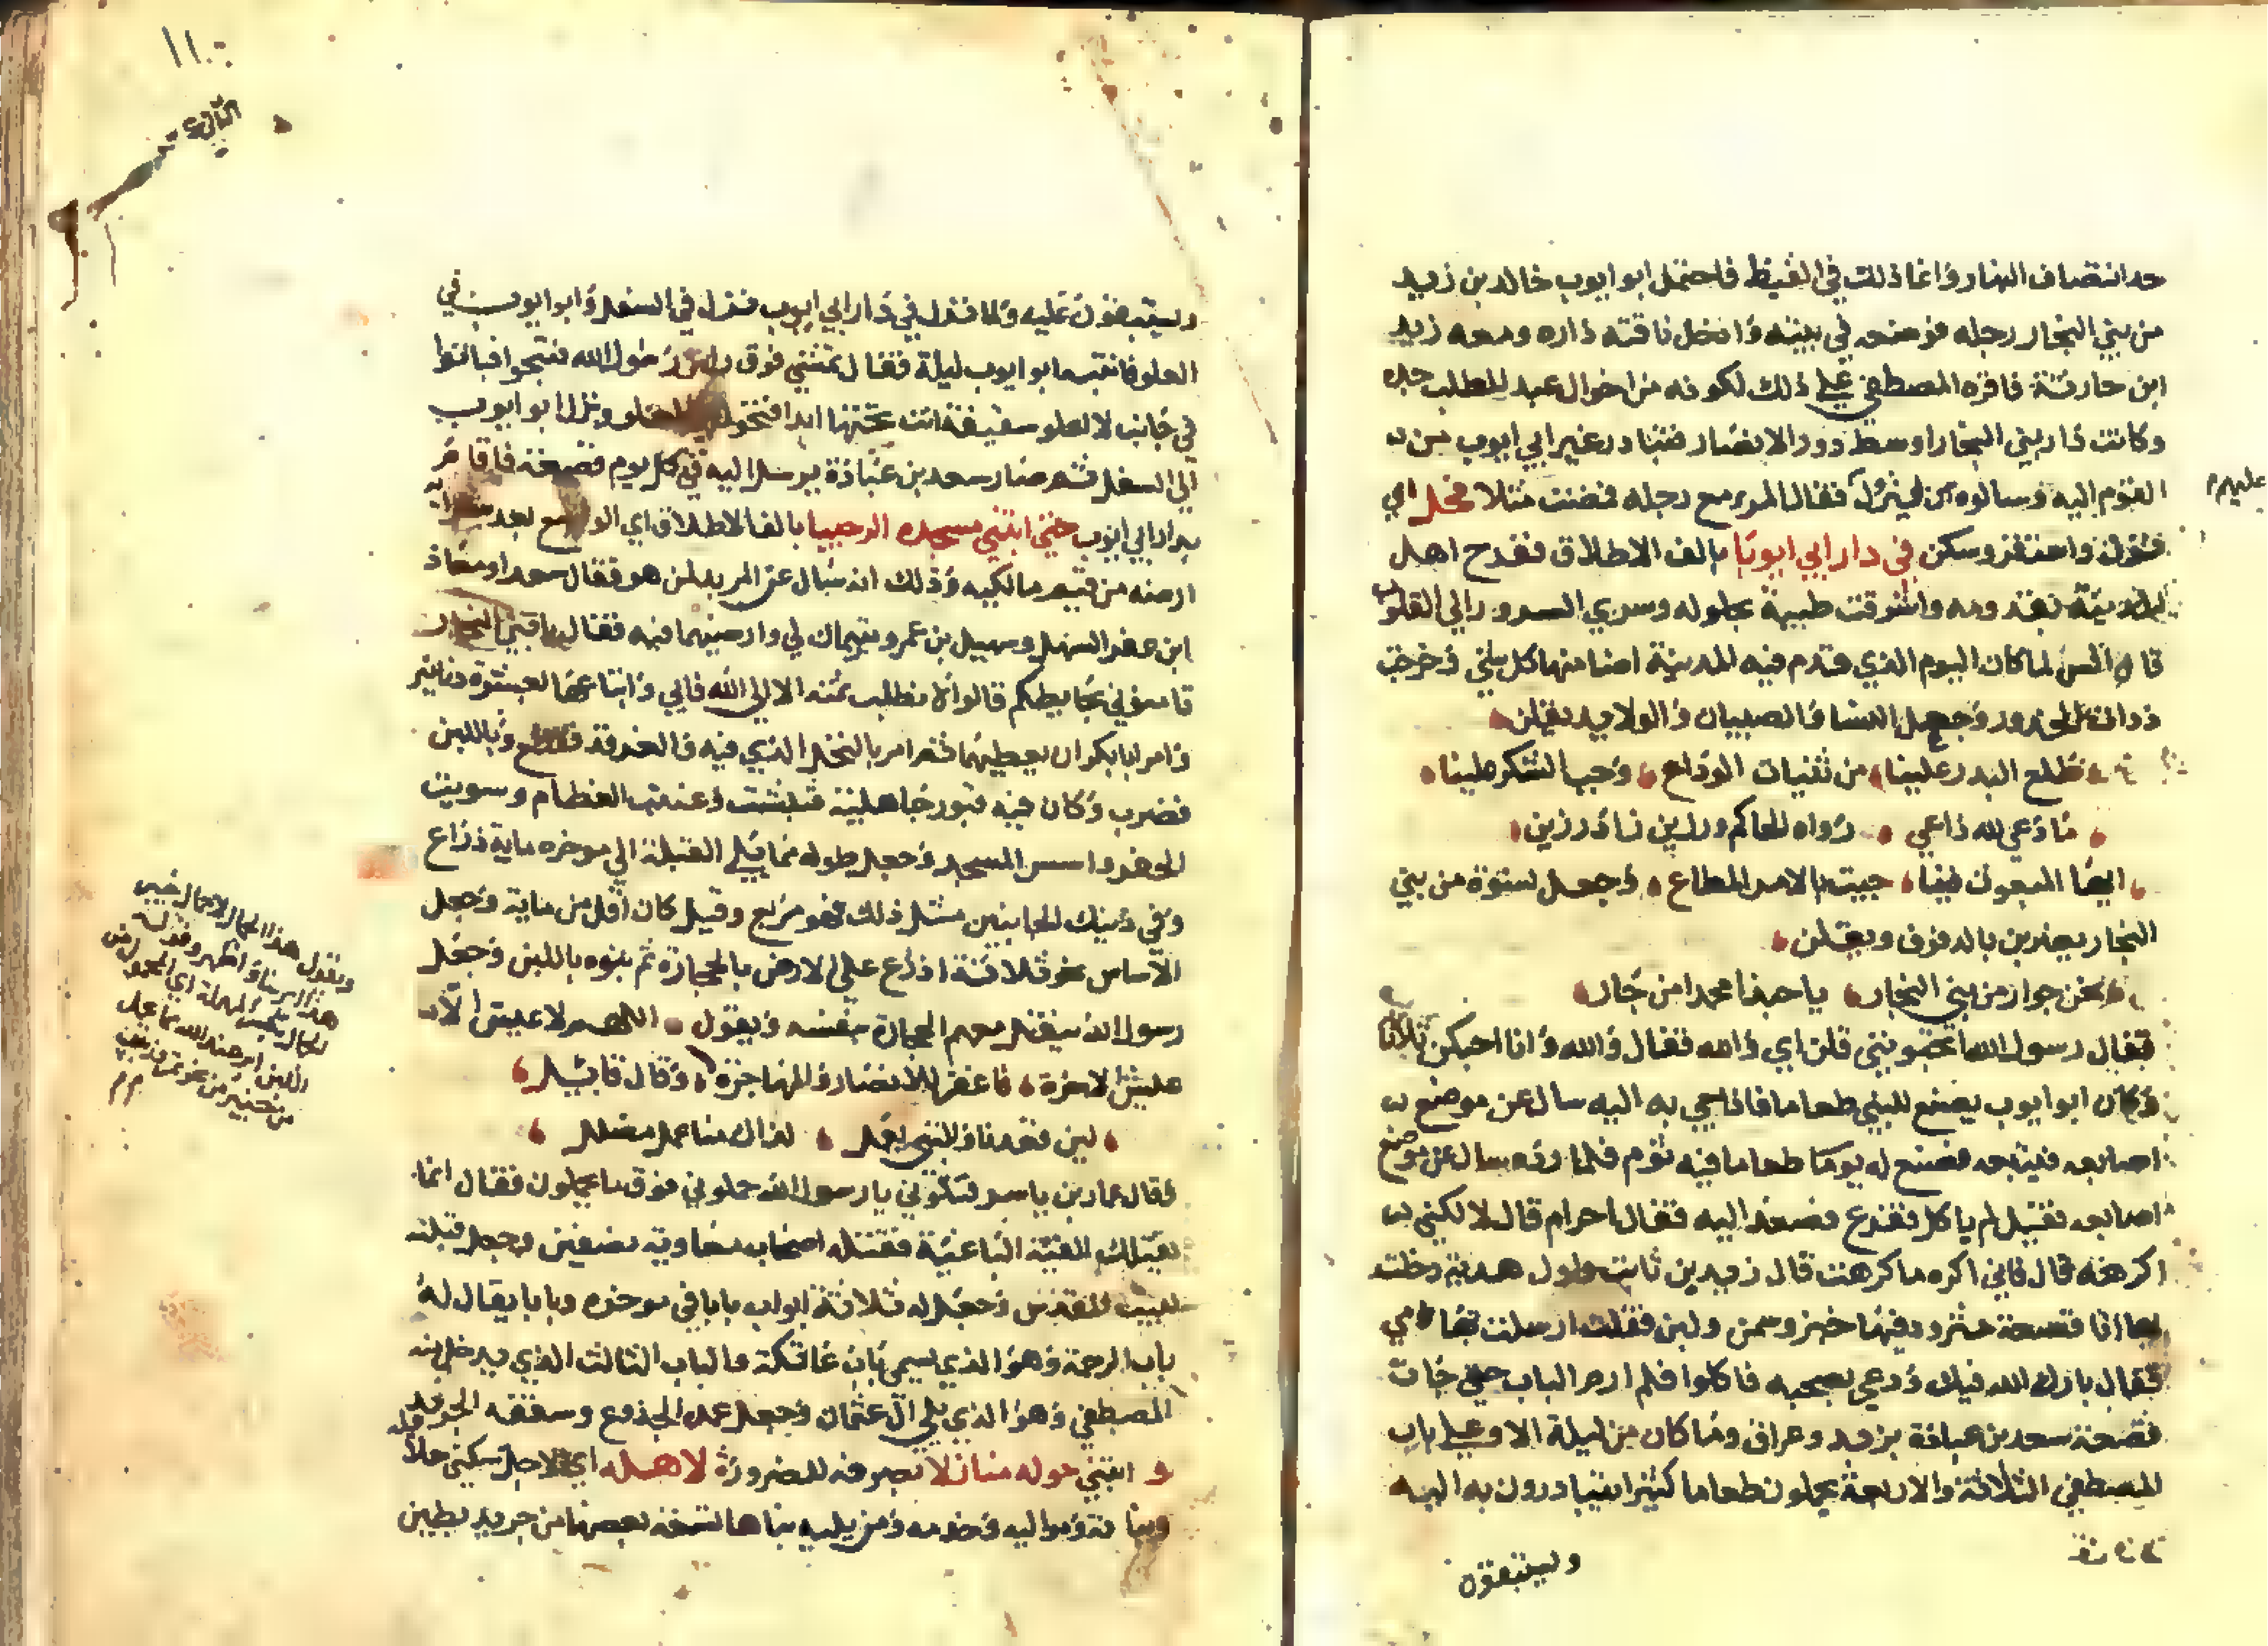 حد انتصاف النهار وانما ذلك في الغيظ فاحتمل ابو ايوب خالد بن زيد
من بني النجار رحله فوضعه في بيته وادخل ناقته داره ومعه زيد
ابن حارثة فاقره المصطفي علي ذلك لكونه من اخوال عبد المطلب جده
وكانت دار بني النجار اوسط دور الانصار فتبادر غير ابي ايوب من
القوم اليه وسالوه ان ينزل فقال المرء مع رحله فضت مثلا فحل اي
عليهم
فنزل واستقر وسكن في دار ابي ايوبا بالف الاطلاق ففرح اهل
المدينة بقدومه واشرقت طيبة بحلوله وسري السرور الي القلوب
قال انس لما كان اليوم الذي قدم فيه المدينة اضا منها كل شي وخرجت
ذوات الخدور وجعل النسا والصبيان والولايد يقلن
طلع البدر علينا من ثنيات الوداع وجب الشكر علينا
ما دعي لله داعي رواه الحاكم وراين نادر زين
ايها المبعوث فينا جيت بالامر المطاع وجعل نسوة من بني
النجار يضربن بالدفوف ويقلن
نحن جوار من بني النجار يا حبذا محمدا من جار
فقال رسول الله اتحبونني قلن اي والله فقال والله وانا احبكن ثلاثا
وكان ابو ايوب يصنع للنبي طعاما فاذا جي به اليه سال عن موضع
اصابعه فيتبعه فصنع له يوما طعاما فيه ثوم فلما رده سال عن موضع
اصابعه فقيل لم ياكل ففزع فصعد اليه فقال احرام قال لا لكني
اكرهه قال فاني اكره ما كرهت قال زيد بن ثابت واول هدية دخلت
بها انا قصعة مثرود فيها خبز وسمن ولبن فقلت ارسلت بها امي
فقال بارك الله فيك ودعي بصحبه فاكلوا فلم ارم الباب حتي جات
قصعة سعد بن عبادة بزبد وعراق وما كان من ليلة الا وعلي باب
المصطفي الثلاثة والاربعة يحملون طعاما كثيرا يتبادرون به اليه
ويتبعون
١١٠
ويتبعون عليه ولما نزل في دار ابي ايوب نزل في السفل وابو ايوب في
العلو فانتبه ابو ايوب ليلة فقال نمشي فوق راس رسول الله فتنحوا فباتوا
في جانب لا اعلو سقيفة انت تحتها ابدا فتحول الي العلو ونزل ابو ايوب
الي السفل ثم صار سعد بن عبادة يرسل اليه في كل يوم قصعة فاقام
بدار ابي ايوب حتي ابتني مسجده الرحيبا بالف الاطلاق اي الواسع بعد
ارضه من قيم مالكيه وذلك انه سال عن المربد لمن هو فقال سعد او معاذ
ابن عفرا لسهل وسهيل بن عمرو يتيمان لي وارضيهما فيه فقال يا بني النجار
ثامنوني بحايطكم قالوا لا نطلب ثمنه الا الي الله فابي وابتاعها بعشرة دنانير
وامر ابا بكر ان يعطيهما ثم امر بالنخل الذي فيه والغرقد فقطع وباللبن
فضرب وكان فيه قبور جاهلية فنبشت وغيبت العظام وسويت
الحفر واسس المسجد وجعل طوله مما يلي القبلة الي موخره ماية ذراع
وفي ذينك الجانبين مثل ذلك فهو مربع وقيل كان اقل من ماية وجعل
الاساس نحو ثلاثة اذرع علي الارض بالحجارة ثم بنوه باللبن وجعل
رسول الله ينقل معهم الحجارة بنفسه ويقول اللهم لا عيش الا
عيش الاخرة فاغفر للانصار والمهاجرة وقال قايل
لين قعدنا والنبي يعمل لذاك منا عمل مضلل
فقال عمار بن ياسر قتلوني يا رسول الله حملوني فوق ما يحملون فقال انما
تقتلك الفية الباغية فقتله اصحاب معاوية بصفين وجعل قبلته
لبيت المقدس وجعل له ثلاثة ابواب بابا في موخره وبابا يقال له
باب الرحمة وهو الذي يسمي باب عاتكة والباب الثالث الذي يدخل منه
المصطفي وهو الذي يلي ال عثمان وجعل عمد الجذوع وسقفه الجريد
وابتني حوله منازلا بصرفه للضرورة لاهله اي لاجل سكني حلايله
وبناته ومواليه وخدمه ومن يليه بناها تسعة بعضها من جريد بطين
ويقول هذا الحمال لا حمال خيبر
هذا ابر ربنا واطهر وقوله
الحمال بكسر المهملة اي المحمول من
اللبن ابر عند الله مما يحمل
من خيبر من نحو تمر وزبيب